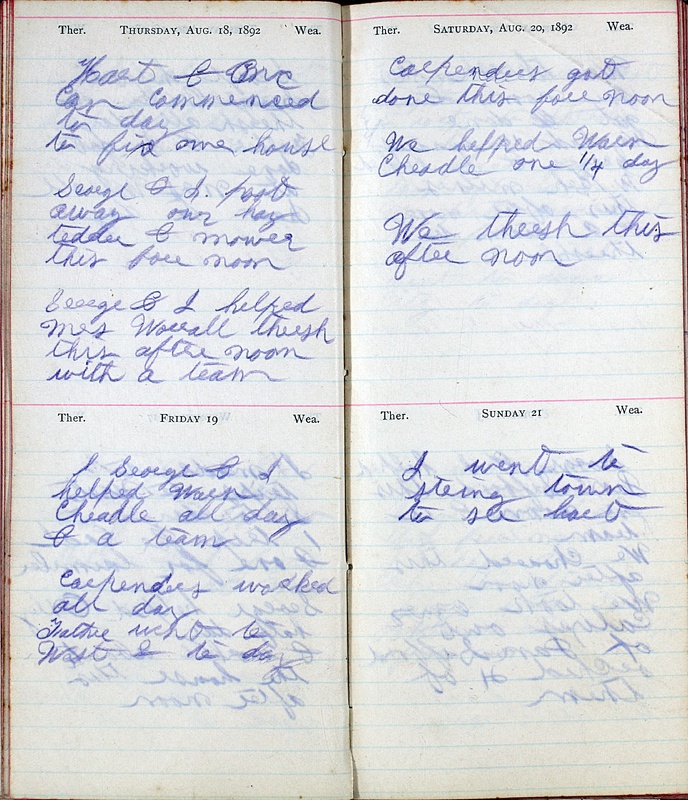 Ther. THURSDAY, AUG. 18, 1892 Wea.
Hast &
Can Commenced
to day
to fix ower house
George & I. poot
away our hay
tedder & mower
this fore noon
George & I helped
Mrs Worrall thresh
this after noon
with a team
Ther. FRIDAY 19 Wea.
I George & I
helped Warn
Cheadle all day
& a team
Carpenders worked
all day
Father went to
West to day
Ther. SATURDAY, AUG. 20, 1892 Wea.
Carpenders got
done this fore noon
We helped Warn
Cheadle one 1/4 day
We thresh this
after noon
Ther. SUNDAY 21 Wea.
I went to
string town
to see